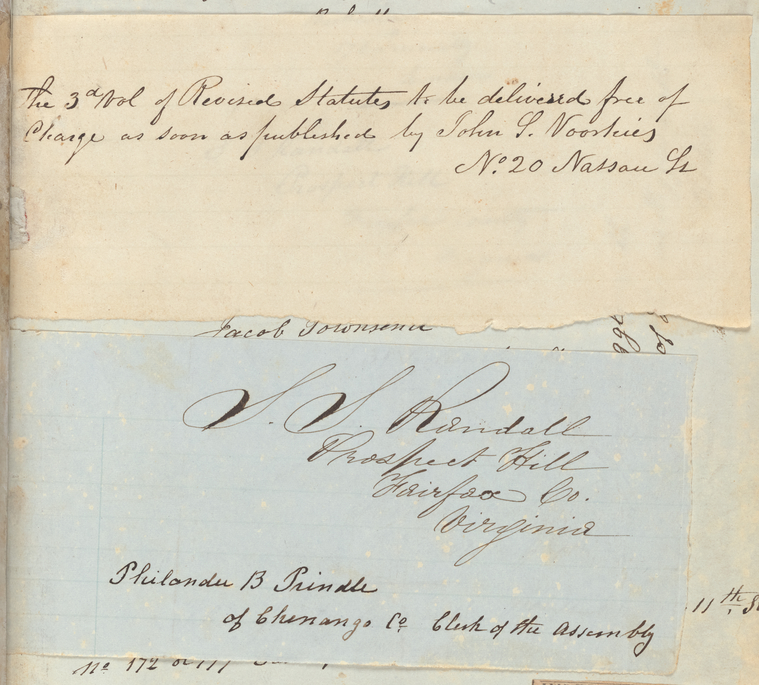 The 3d Vol of Revised Statutes to be delivered free of
Charge as soon as published by John S. Voorhies
No. 20 Nassau St
Jacob Townsend
S. S. Randall
Prospect Hill
Fairfax Co.
Virginia
Philander B Prindle
of Chenango Co Clerk of the Assembly
11th
No 172 or 177